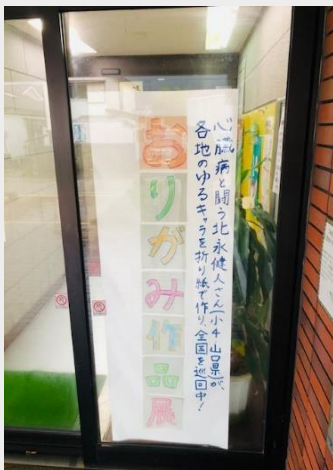 心臓病と闘う北永健人さん(小4 山口県)が、
各地のゆるキャラを折り紙で作り、全国を巡回中!
おりがみ作品展